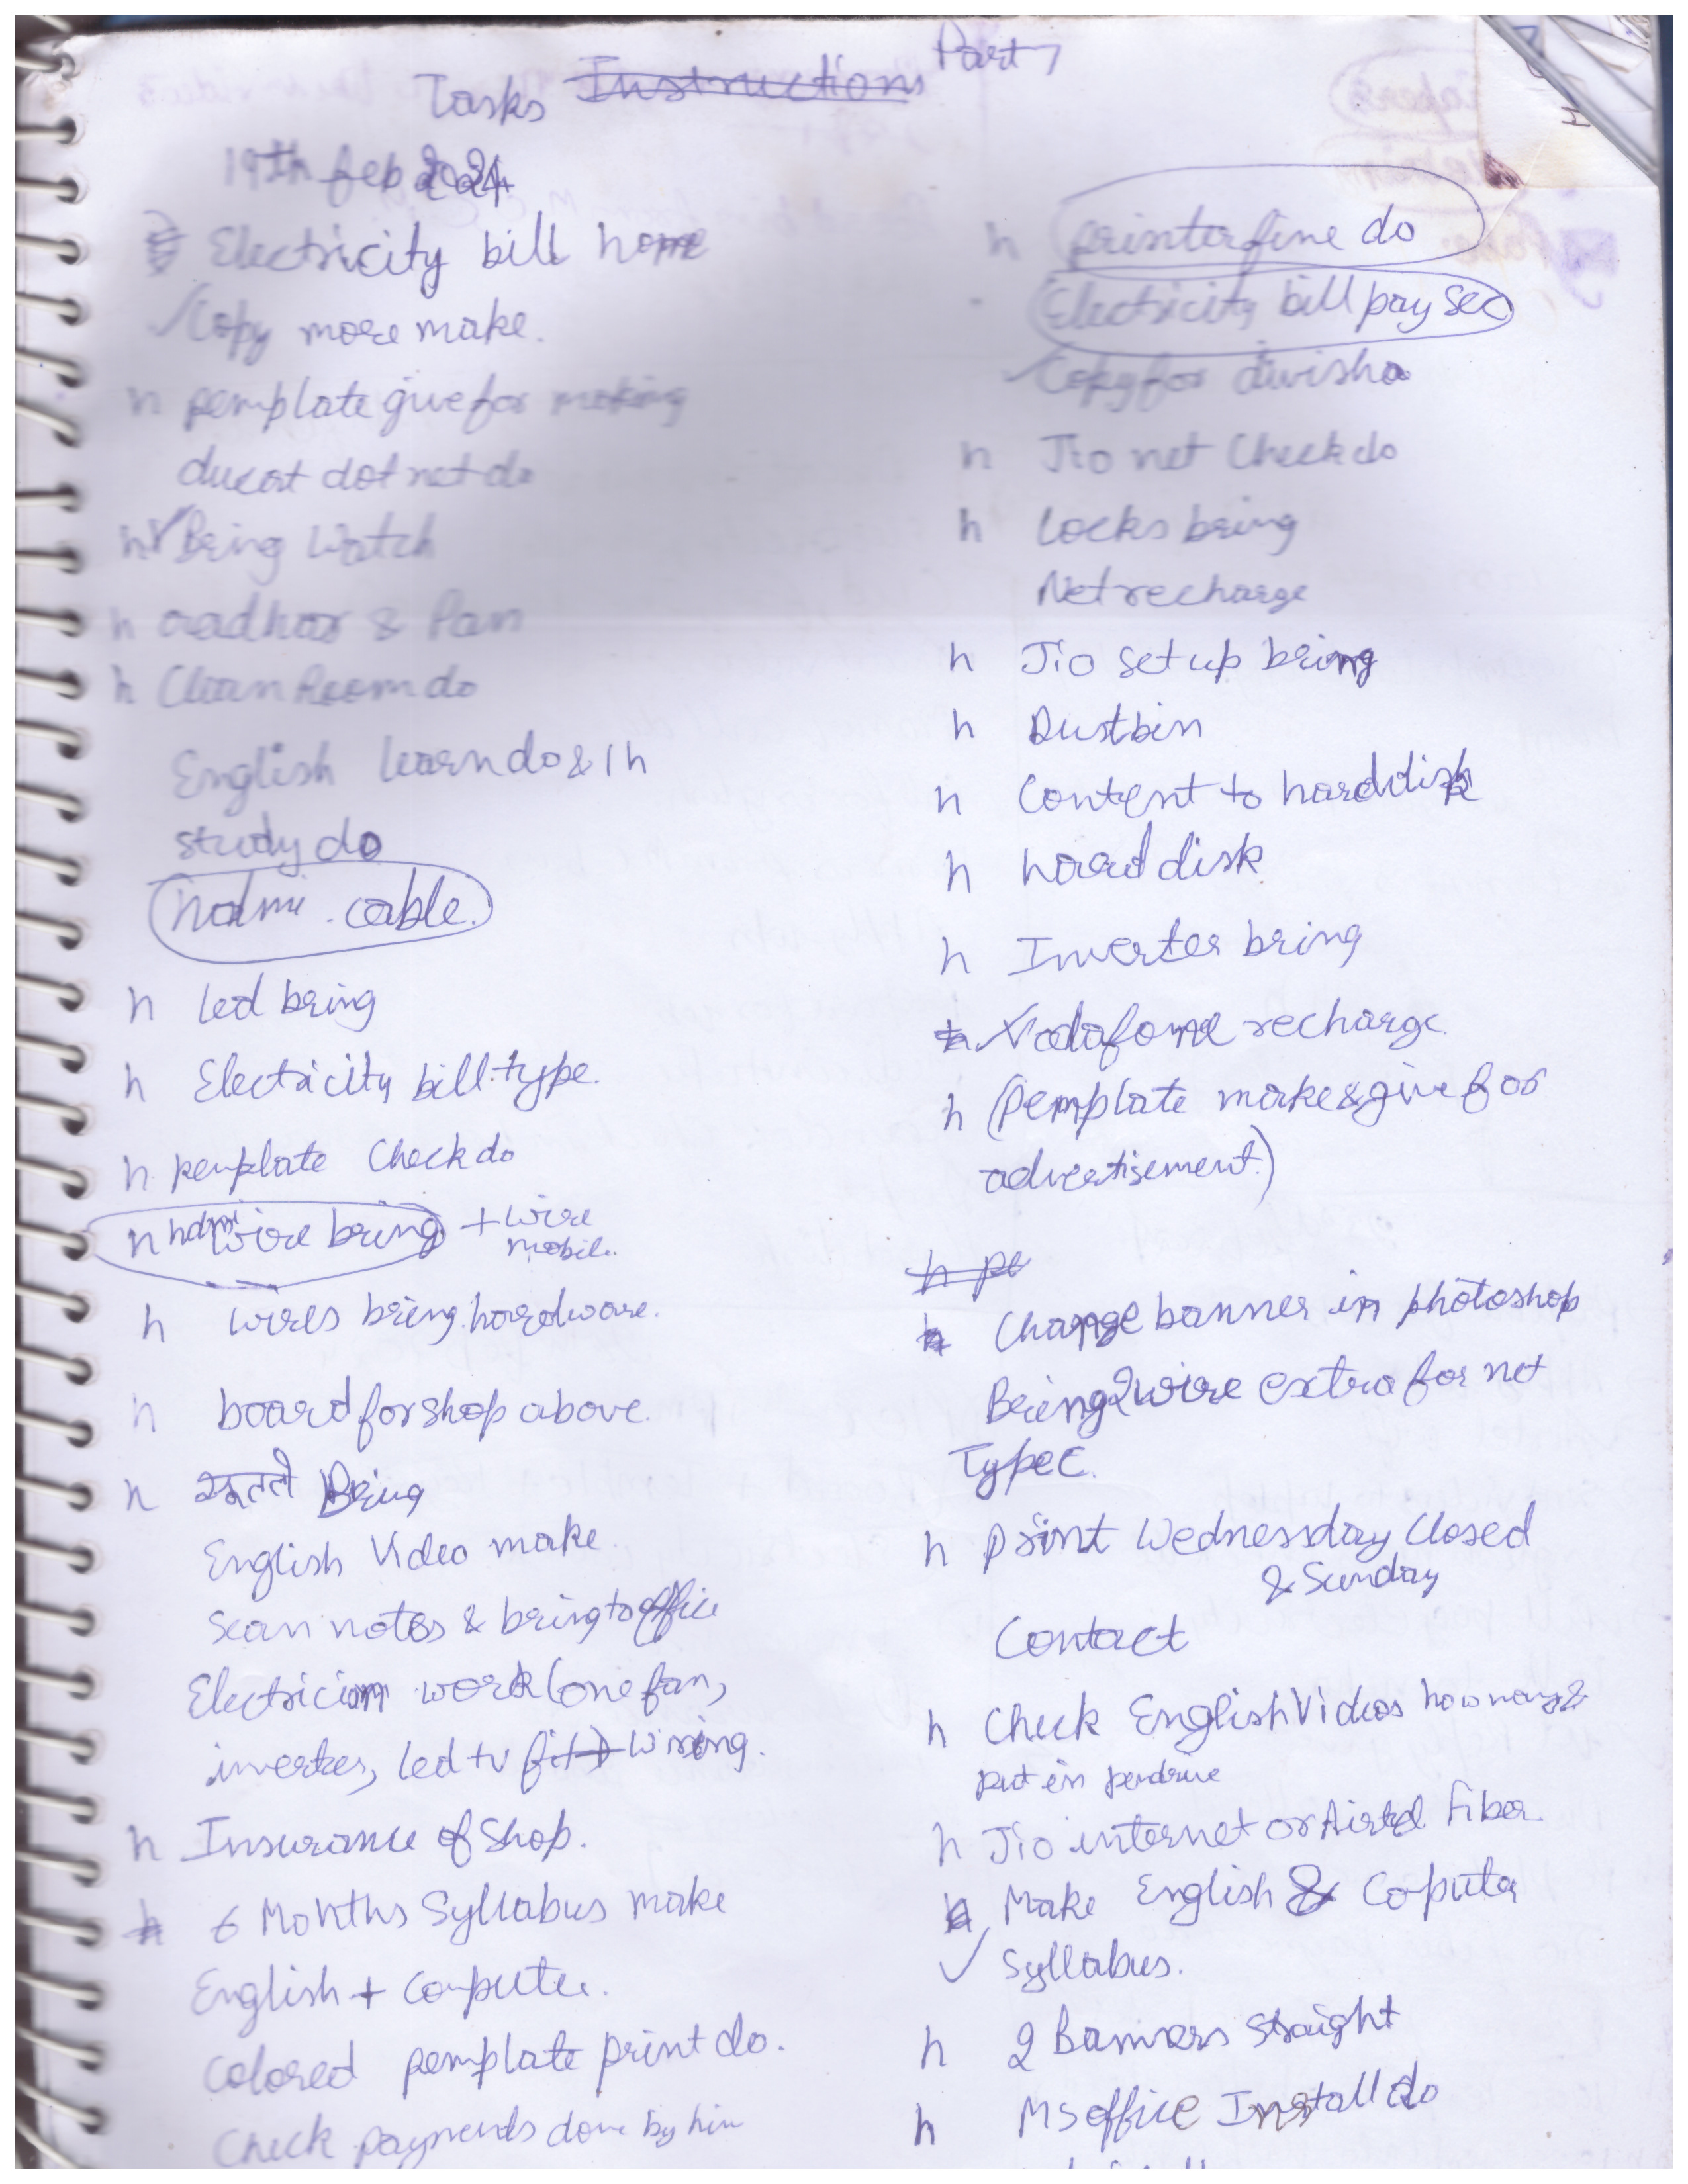 Part 7
Tasks Instructions
19th feb 2024
Electricity bill home
✓ Copy more make.
h pemplate give for making
ducat dot net do
h ✓ Bring Watch
h aadhar & Pan
h Clean Room do
English learn do & 1 h
study do
hdmi cable.
h led bring
h Electricity bill type.
h pemplate Check do
h hdmi wire bring + wire
mobile.
h wires bring hardware.
h board for shop above.
h Bring
English Video make.
Scan notes & bring to office
Electrician work (one fan,
inverter, led tv fit) Wiring.
h Insurance of Shop.
h 6 Months Syllabus make
English + Computer.
Colored pemplate print do.
Check payments done by him
h printer fine do
Electricity bill pay sec
✓ Copy for divisha
h Jio net Check do
h Locks bring
Net recharge
h Jio set up bring
h Dustbin
h Content to harddisk
h hard disk
h Inverter bring
h ✓ Vodafone recharge.
h (Pemplate make & give for
advertisement.)
h pe
h Change banner in photoshop
Bring 2 wire extra for net
Type C.
h print Wednesday Closed
& Sunday
Contact
h Check English Videos how many &
put in pendrive
h Jio internet or Airtel Fiber.
h Make English & Coputer
✓ Syllabus.
h 2 Banners Straight
h MS office Install do